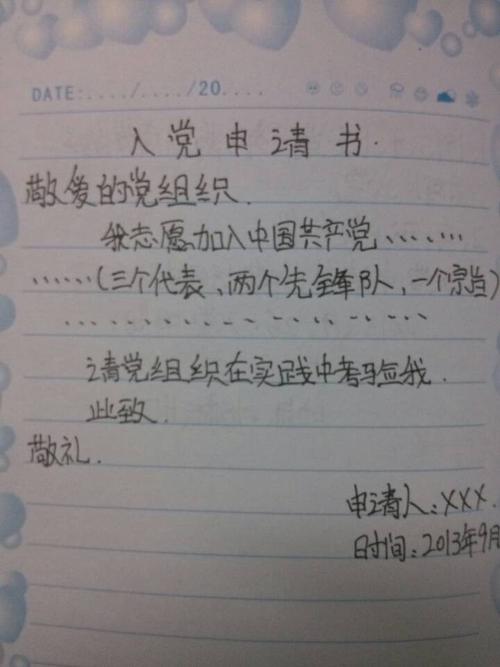 DATE:..../..../20....
入党申请书.
敬爱的党组织.
我志愿加入中国共产党........
......(三个代表、两个先锋队,一个宗旨)
..............
请党组织在实践中考验我.
此致.
敬礼.
申请人:XXX.
时间:2013年9月